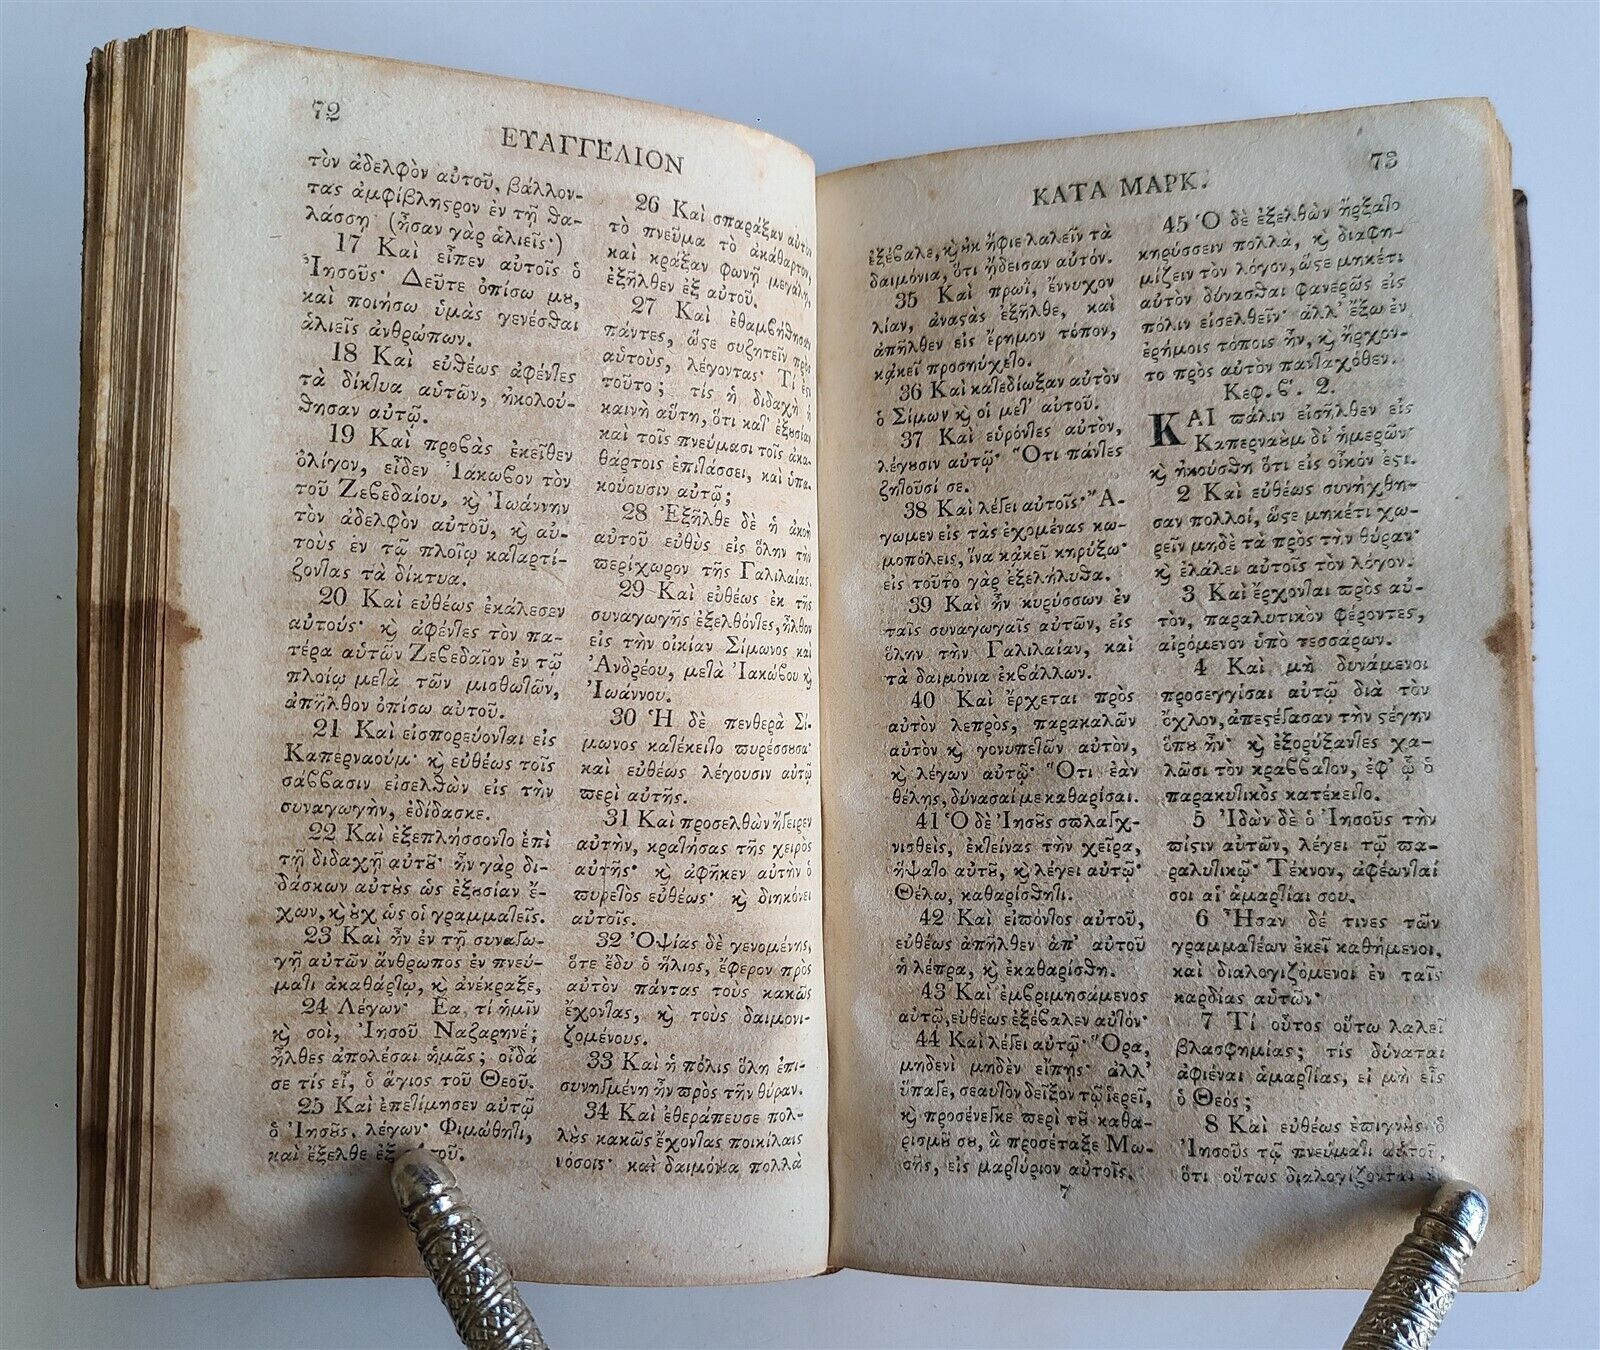 72
ΕΥΑΓΓΕΛΙΟΝ
τὸν ἀδελφὸν αὐτοῦ, βάλλον-
τας ἀμφίβληϛρον ἐν τῇ θα-
λάσσῃ· (ἦσαν γὰρ ἁλιεῖς·)
17 Καὶ εἶπεν αὐτοῖς ὁ
Ἰησοῦς· Δεῦτε ὀπίσω μȣ,
καὶ ποιήσω ὑμᾶς γενέσθαι
ἁλιεῖς ἀνθρώπων.
18 Καὶ εὐθέως ἀφέντες
τὰ δίκτυα αὑτῶν, ἠκολού-
θησαν αὐτῷ.
19 Καὶ προβὰς ἐκεῖθεν
ὀλίγον, εἶδεν Ἰάκωβον τὸν
τοῦ Ζεβεδαίου, ϗ Ἰωάννην
τὸν ἀδελφὸν αὐτοῦ, ϗ αὐ-
τοὺς ἐν τῷ πλοίῳ καταρτί-
ζοντας τὰ δίκτυα.
20 Καὶ εὐθέως ἐκάλεσεν
αὐτούς· ϗ ἀφέντες τὸν πα-
τέρα αὑτῶν Ζεβεδαῖον ἐν τῷ
πλοίῳ μετὰ τῶν μισθωτῶν,
ἀπῆλθον ὀπίσω αὐτοῦ.
21 Καὶ εἰσπορεύονται εἰς
Καπερναούμ· ϗ εὐθέως τοῖς
σάββασιν εἰσελθὼν εἰς τὴν
συναγωγὴν, ἐδίδασκε.
22 Καὶ ἐξεπλήσσοντο ἐπὶ
τῇ διδαχῇ αὐτȣ͂· ἦν γὰρ δι-
δάσκων αὐτȣ̀ς ὡς ἐξουσίαν ἔ-
χων, ϗ ȣ̓χ ὡς οἱ γραμματεῖς.
23 Καὶ ἦν ἐν τῇ συναγω-
γῇ αὐτῶν ἄνθρωπος ἐν πνεύ-
ματι ἀκαθάρτῳ, ϗ ἀνέκραξε,
24 Λέγων· Ἔα, τί ἡμῖν
ϗ σοὶ, Ἰησοῦ Ναζαρηνέ;
ἦλθες ἀπολέσαι ἡμᾶς; οἶδά
σε τίς εἶ, ὁ ἅγιος τοῦ Θεοῦ.
25 Καὶ ἐπετίμησεν αὐτῷ
ὁ Ἰησȣ͂ς, λέγων· Φιμώθητι,
καὶ ἔξελθε ἐξ
26 Καὶ σπαράξαν αὐτὸν
τὸ πνεῦμα τὸ ἀκάθαρτον,
καὶ κράξαν φωνῇ μεγάλῃ,
ἐξῆλθεν ἐξ αὐτοῦ.
27 Καὶ ἐθαμβήθησαν
πάντες, ὥϛε συζητεῖν πρὸς
αὑτοὺς, λέγοντας· Τί ἐϛι
τοῦτο; τίς ἡ διδαχὴ ἡ
καινὴ αὕτη, ὅτι κατ' ἐξȣσίαν
καὶ τοῖς πνεύμασι τοῖς ἀκα-
θάρτοις ἐπιτάσσει, καὶ ὑπα-
κούουσιν αὐτῷ;
28 Ἐξῆλθε δὲ ἡ ἀκοὴ
αὐτοῦ εὐθὺς εἰς ὅλην τὴν
ϖερίχωρον τῆς Γαλιλαίας.
29 Καὶ εὐθέως ἐκ τῆς
συναγωγῆς ἐξελθόντες, ἦλθον
εἰς τὴν οἰκίαν Σίμωνος καὶ
Ἀνδρέου, μετὰ Ἰακώβου ϗ
Ἰωάννου.
30 Ἡ δὲ πενθερὰ Σί-
μωνος κατέκειτο ϖυρέσσȣσα·
καὶ εὐθέως λέγουσιν αὐτῷ
ϖερὶ αὐτῆς.
31 Καὶ προσελθὼν ἤγειρεν
αὐτὴν, κρατήσας τῆς χειρὸς
αὐτῆς· ϗ ἀφῆκεν αὐτὴν ὁ
ϖυρετὸς εὐθέως· ϗ διηκόνει
αὐτοῖς.
32 Ὀψίας δὲ γενομένης,
ὅτε ἔδυ ὁ ἥλιος, ἔφερον πρὸς
αὐτὸν πάντας τοὺς κακῶς
ἔχοντας, ϗ τοὺς δαιμονι-
ζομένους.
33 Καὶ ἡ πόλις ὅλη ἐπι-
συνηγμένη ἦν ϖρὸς τὴν θύραν.
34 Καὶ ἐθεράπευσε πολ-
λȣ̀ς κακῶς ἔχοντας ποικίλαις
νόσοις· καὶ δαιμόνια πολλὰ
ΚΑΤΑ ΜΑΡΚ.
73
ἐξέβαλε, ϗ ȣ̓κ ἤφιε λαλεῖν τὰ
δαιμόνια, ὅτι ᾔδεισαν αὐτόν.
35 Καὶ πρωῒ, ἔννυχον
λίαν, ἀναϛὰς ἐξῆλθε, καὶ
ἀπῆλθεν εἰς ἔρημον τόπον,
κᾀκεῖ προσηύχετο.
36 Καὶ κατεδίωξαν αὐτὸν
ὁ Σίμων ϗ οἱ μετ' αὐτοῦ.
37 Καὶ εὑρόντες αὐτὸν,
λέγȣσιν αὐτῷ· Ὅτι πάντες
ζητοῦσί σε.
38 Καὶ λέγει αὐτοῖς· Ἄ-
γωμεν εἰς τὰς ἐχομένας κω-
μοπόλεις, ἵνα κᾀκεῖ κηρύξω·
εἰς τοῦτο γὰρ ἐξελήλυθα.
39 Καὶ ἦν κυρύσσων ἐν
ταῖς συναγωγαῖς αὐτῶν, εἰς
ὅλην τὴν Γαλιλαίαν, καὶ
τὰ δαιμόνια ἐκβάλλων.
40 Καὶ ἔρχεται πρὸς
αὐτὸν λεπρὸς, παρακαλῶν
αὐτὸν ϗ γονυπετῶν αὐτὸν,
ϗ λέγων αὐτῷ· Ὅτι ἐὰν
θέλῃς, δύνασαί με καθαρίσαι.
41 Ὁ δὲ Ἰησȣ͂ς σπλαγχ-
νισθεὶς, ἐκτείνας τὴν χεῖρα,
ἥψατο αὐτȣ͂, ϗ λέγει αὐτῷ·
Θέλω, καθαρίσθητι.
42 Καὶ εἰπόντος αὐτοῦ,
εὐθέως ἀπῆλθεν ἀπ' αὐτοῦ
ἡ λέπρα, ϗ ἐκαθαρίσθη.
43 Καὶ ἐμβριμησάμενος
αὐτῷ, εὐθέως ἐξέβαλεν αὐτόν·
44 Καὶ λέγει αὐτῷ· Ὅρα,
μηδενὶ μηδὲν εἴπῃς· ἀλλ'
ὕπαγε, σεαυτὸν δεῖξον τῷ ἱερεῖ,
ϗ προσένεγκε ϖερὶ τȣ͂ καθα-
ρισμȣ͂ σȣ, ἃ προσέταξε Μω-
σῆς, εἰς μαρτύριον αὐτοῖς.
45 Ὁ δὲ ἐξελθὼν ἤρξατο
κηρύσσειν πολλὰ, ϗ διαφη-
μίζειν τὸν λόγον, ὥϛε μηκέτι
αὐτὸν δύνασθαι φανερῶς εἰς
πόλιν εἰσελθεῖν· ἀλλ' ἔξω ἐν
ἐρήμοις τόποις ἦν, ϗ ἤρχον-
το πρὸς αὐτὸν πανταχόθεν.
Κεφ. β'. 2.
ΚΑΙ ϖάλιν εἰσῆλθεν εἰς
Καπερναȣ̀μ δι' ἡμερῶν·
ϗ ἠκούσθη ὅτι εἰς οἶκόν ἐϛι.
2 Καὶ εὐθέως συνήχθη-
σαν πολλοὶ, ὥϛε μηκέτι χω-
ρεῖν μηδὲ τὰ πρὸς τὴν θύραν·
ϗ ἐλάλει αὐτοῖς τὸν λόγον.
3 Καὶ ἔρχονται πρὸς αὐ-
τὸν, παραλυτικὸν φέροντες,
αἰρόμενον ὑπὸ τεσσάρων.
4 Καὶ μὴ δυνάμενοι
προσεγγίσαι αὐτῷ διὰ τὸν
ὄχλον, ἀπεϛέγασαν τὴν ϛέγην
ὅπȣ ἦν· ϗ ἐξορύξαντες χα-
λῶσι τὸν κράββατον, ἐφ' ᾧ ὁ
παρακυτικὸς κατέκειτο.
5 Ἰδὼν δὲ ὁ Ἰησοῦς τὴν
πίϛιν αὐτῶν, λέγει τῷ πα-
ραλυτικῷ· Τέκνον, ἀφέωνταί
σοι αἱ ἁμαρτίαι σου.
6 Ἦσαν δέ τινες τῶν
γραμματέων ἐκεῖ καθήμενοι,
καὶ διαλογιζόμενοι ἐν ταῖς
καρδίαις αὑτῶν·
7 Τί οὗτος οὕτω λαλεῖ
βλασφημίας; τίς δύναται
ἀφιέναι ἁμαρτίας, εἰ μὴ εἷς
ὁ Θεός;
8 Καὶ εὐθέως ἐπιγνȣ̀ς ὁ
Ἰησοῦς τῷ πνεύματι αὑτοῦ,
ὅτι οὕτως διαλογίζονται
7